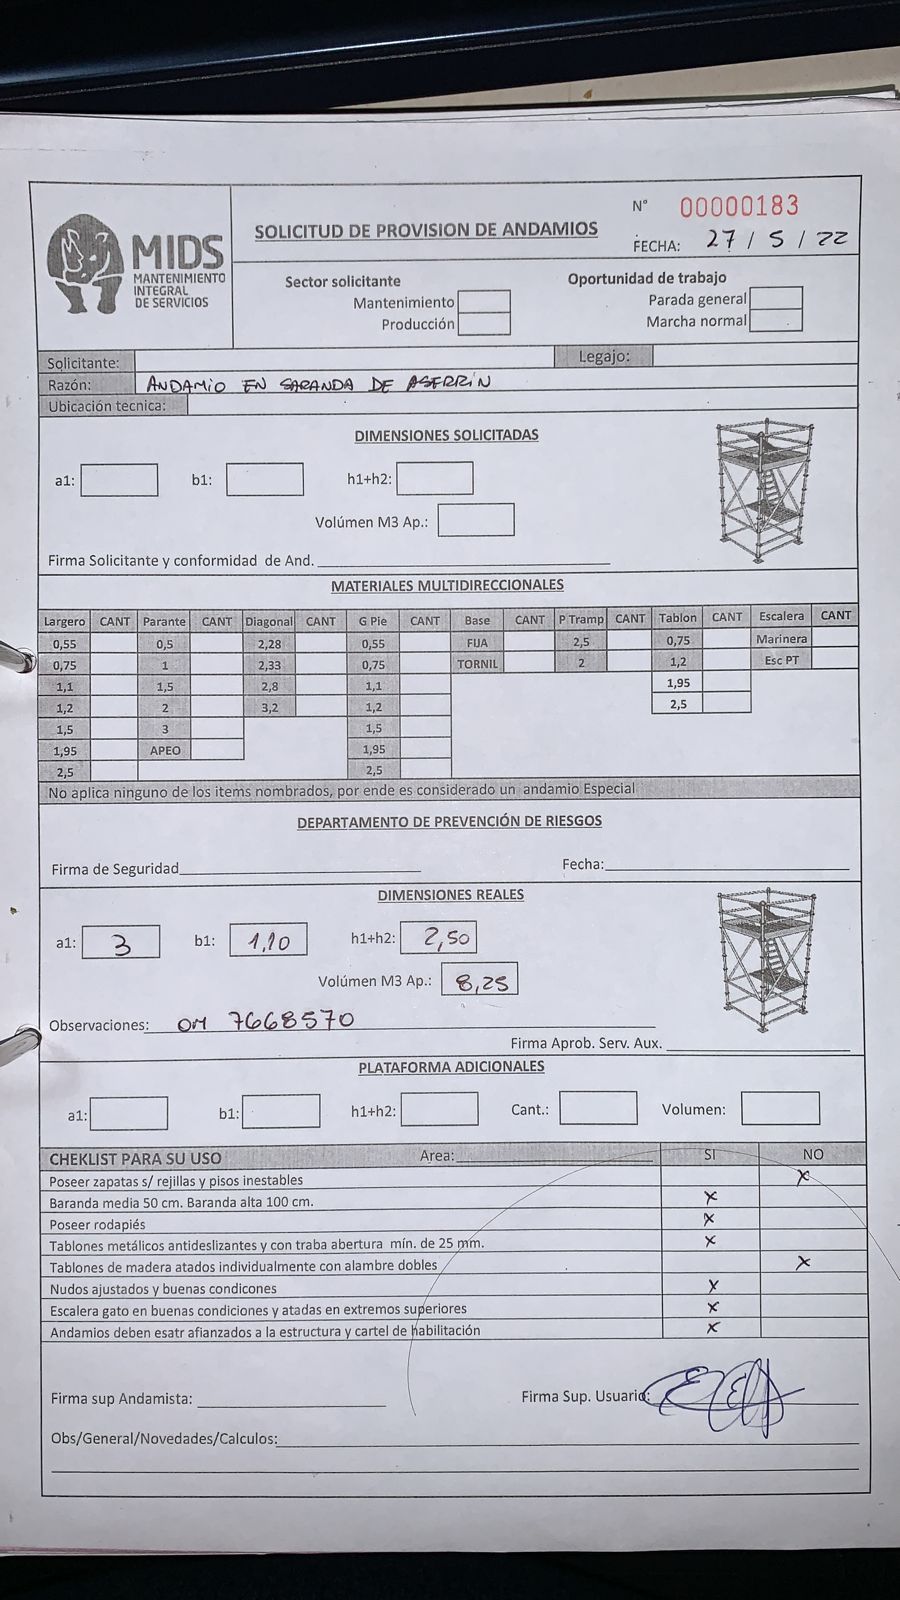 MIDS
MANTENIMIENTO
INTEGRAL
DE SERVICIOS
SOLICITUD DE PROVISION DE ANDAMIOS
N° 00000183
FECHA: 27 / 5 / 22
Sector solicitante
Mantenimiento
Producción
Oportunidad de trabajo
Parada general
Marcha normal
Solicitante: Legajo:
Razón: ANDAMIO EN SARANDA DE ASERRIN
Ubicación tecnica:
DIMENSIONES SOLICITADAS
a1: b1: h1+h2:
Volúmen M3 Ap.:
Firma Solicitante y conformidad de And.
MATERIALES MULTIDIRECCIONALES
Largero CANT Parante CANT Diagonal CANT G Pie CANT Base CANT P Tramp CANT Tablon CANT Escalera CANT
0,55 0,5 2,28 0,55 FIJA 2,5 0,75 Marinera
0,75 1 2,33 0,75 TORNIL 2 1,2 Esc PT
1,1 1,5 2,8 1,1 1,95
1,2 2 3,2 1,2 2,5
1,5 3 1,5
1,95 APEO 1,95
2,5 2,5
No aplica ninguno de los items nombrados, por ende es considerado un andamio Especial
DEPARTAMENTO DE PREVENCIÓN DE RIESGOS
Firma de Seguridad Fecha:
DIMENSIONES REALES
a1: 3 b1: 1,10 h1+h2: 2,50
Volúmen M3 Ap.: 8,25
Observaciones: OM 7668570
Firma Aprob. Serv. Aux.
PLATAFORMA ADICIONALES
a1: b1: h1+h2: Cant.: Volumen:
CHEKLIST PARA SU USO Area: SI NO
Poseer zapatas s/ rejillas y pisos inestables X
Baranda media 50 cm. Baranda alta 100 cm. X
Poseer rodapiés X
Tablones metálicos antideslizantes y con traba abertura mín. de 25 mm. X
Tablones de madera atados individualmente con alambre dobles X
Nudos ajustados y buenas condicones X
Escalera gato en buenas condiciones y atadas en extremos superiores X
Andamios deben esatr afianzados a la estructura y cartel de habilitación X
Firma sup Andamista: Firma Sup. Usuario:
Obs/General/Novedades/Calculos: